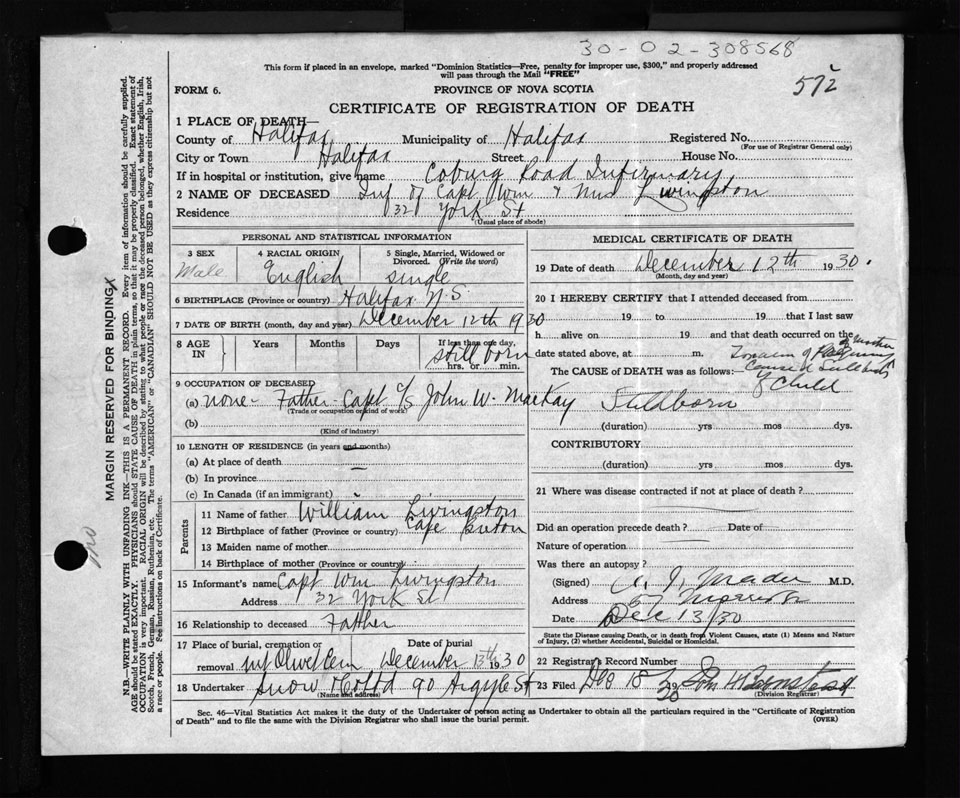 30-02-308568
This form if placed in an envelope, marked "Dominion Statistics—Free, penalty for improper use, $300," and properly addressed
will pass through the Mail "FREE"
572
FORM 6.
PROVINCE OF NOVA SCOTIA
CERTIFICATE OF REGISTRATION OF DEATH
1 PLACE OF DEATH
County of Halifax Municipality of Halifax Registered No.
(For use of Registrar General only)
City or Town Halifax Street House No.
If in hospital or institution, give name Coburg Road Infirmary
2 NAME OF DECEASED Inf of Capt Wm & Mrs Livingston
Residence 32 York St
(Usual place of abode)
PERSONAL AND STATISTICAL INFORMATION
3 SEX Male
4 RACIAL ORIGIN English
5 Single, Married, Widowed or
Divorced. (Write the word) single
6 BIRTHPLACE (Province or country) Halifax N.S.
7 DATE OF BIRTH (month, day and year) December 12th 1930
8 AGE IN Years Months Days If less than one day,
still born
hrs. or min.
9 OCCUPATION OF DECEASED
(a) none - Father - Capt C/S John W. MacKay
(Trade or occupation or kind of work)
(b)
(Kind of industry)
10 LENGTH OF RESIDENCE (in years and months)
(a) At place of death
(b) In province
(c) In Canada (if an immigrant)
Parents
11 Name of father William Livingston
12 Birthplace of father (Province or country) Cape Breton
13 Maiden name of mother
14 Birthplace of mother (Province or country)
15 Informant's name Capt Wm Livingston
Address 32 York St
16 Relationship to deceased Father
17 Place of burial, cremation or Date of burial
removal Mt Olivet Cem December 13th 1930
18 Undertaker Snow 90 Argyle St
(Name and address)
MEDICAL CERTIFICATE OF DEATH
19 Date of death December 12th 1930.
(Month, day and year)
20 I HEREBY CERTIFY that I attended deceased from
19 to 19 that I last saw
h alive on 19 and that death occurred on the
date stated above, at m. Toxaemia of Pregnancy of mother
The CAUSE of DEATH was as follows:— Cause of Stillbirth
of Child
Stillborn
(duration) yrs mos dys.
CONTRIBUTORY
(duration) yrs mos dys.
21 Where was disease contracted if not at place of death?
Did an operation precede death? Date of
Nature of operation
Was there an autopsy?
(Signed) Mader M.D.
Address 57 Morris St
Date Dec 13/30
State the Disease causing Death, or in death from Violent Causes, state (1) Means and Nature
of Injury, (2) whether Accidental, Suicidal or Homicidal.
22 Registrar's Record Number
23 Filed Dec 18 19
30
(Division Registrar)
Sec. 46—Vital Statistics Act makes it the duty of the Undertaker or person acting as Undertaker to obtain all the particulars required in the "Certificate of Registration
of Death" and to file the same with the Division Registrar who shall issue the burial permit.
(OVER)
MARGIN RESERVED FOR BINDING
N.B.—WRITE PLAINLY WITH UNFADING INK—THIS IS A PERMANENT RECORD. Every item of information should be carefully supplied.
AGE should be stated EXACTLY. PHYSICIANS should STATE CAUSE OF DEATH in plain terms, so that it may be properly classified. Exact statement of
OCCUPATION is very important. RACIAL ORIGIN will be described by stating to what people or race the deceased person belonged, whether English, Irish,
Scotch, French, German, Russian, Ruthenian, etc. The terms "AMERICAN" or "CANADIAN" SHOULD NOT BE USED as they express citizenship but not
a race or people. See instructions on back of Certificate.